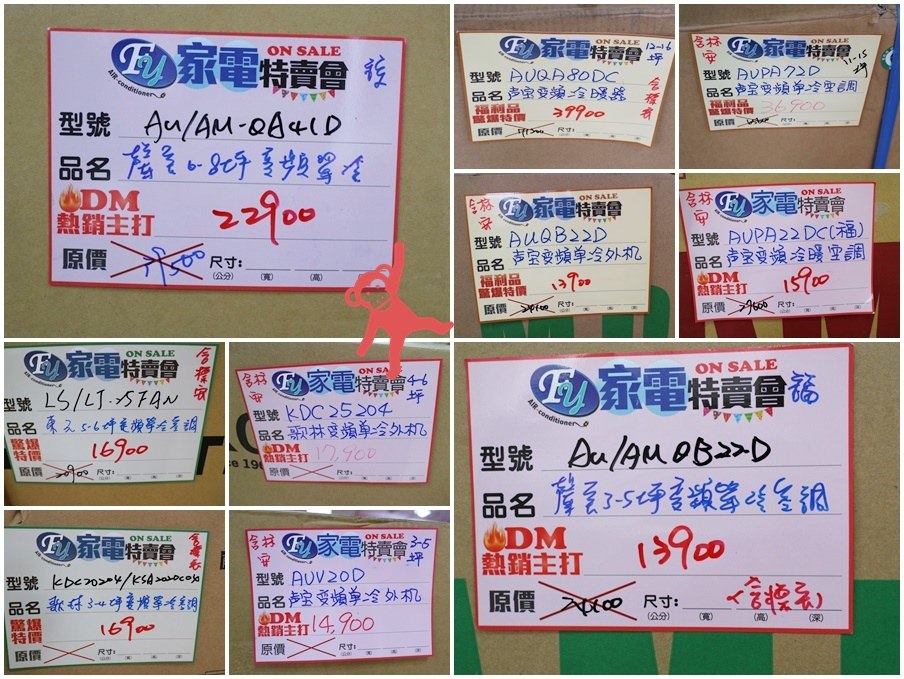 FY 家電特賣會 ON SALE
AIR-conditioner
型號 AU/AM-QA41D
品名 聲宝6-8坪變頻單冷
DM
熱銷主打 22900
原價 尺寸:
(公分) (寬) (高) (深)
FY 家電特賣會 ON SALE 12-16坪
型號 AUQA80DC 含標安
品名 声宝变頻冷暖器
福利品
驚爆特價 39900
原價 尺寸:
含标安 FY 家電特賣會 ON SALE 11-15坪
型號 AUPA72D
品名 声宝变頻单冷空調
福利品
驚爆特價 36900
原價 尺寸:
含标安 FY 家電特賣會 ON SALE
型號 AUQB22D
品名 声宝变頻单冷外机
福利品
驚爆特價 13900
原價 24100 尺寸:
含标安 FY 家電特賣會 ON SALE
型號 AUPA22DC(福)
品名 声宝变頻冷暖空調
DM
熱銷主打 15900
原價 29600 尺寸:
FY 家電特賣會 ON SALE 含標安
型號 LS/LJ-25FAN
品名 東元5-6坪變頻單冷空調
驚爆
特價 16900
原價 20900 尺寸:
含标安 FY 家電特賣會 ON SALE 4-6坪
型號 KDC25204
品名 歌林变頻单冷外机
DM
熱銷主打 17,900
原價 尺寸:
FY 家電特賣會 ON SALE 福
AIR-conditioner
型號 AU/AM QB22D
品名 聲宝3-5坪變頻單冷空調
DM
熱銷主打 13900
原價 24100 尺寸: (含標安)
(公分) (寬) (高) (深)
FY 家電特賣會 ON SALE 含標安
型號 KDC20204/KSA202DC04
品名 歌林3-4坪變頻單冷空調
驚爆
特價 16900
原價 尺寸:
含标安 FY 家電特賣會 ON SALE 3-5坪
型號 AUV20D
品名 声宝变頻单冷外机
DM
熱銷主打 14,900
原價 尺寸: